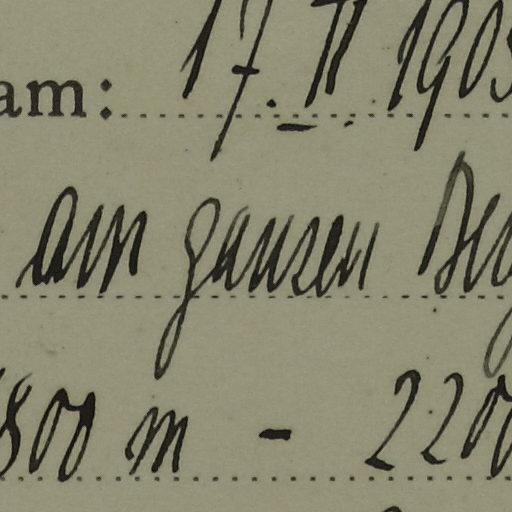 am: 17. II. 1903
am ganzen Berg
1800 m - 2200